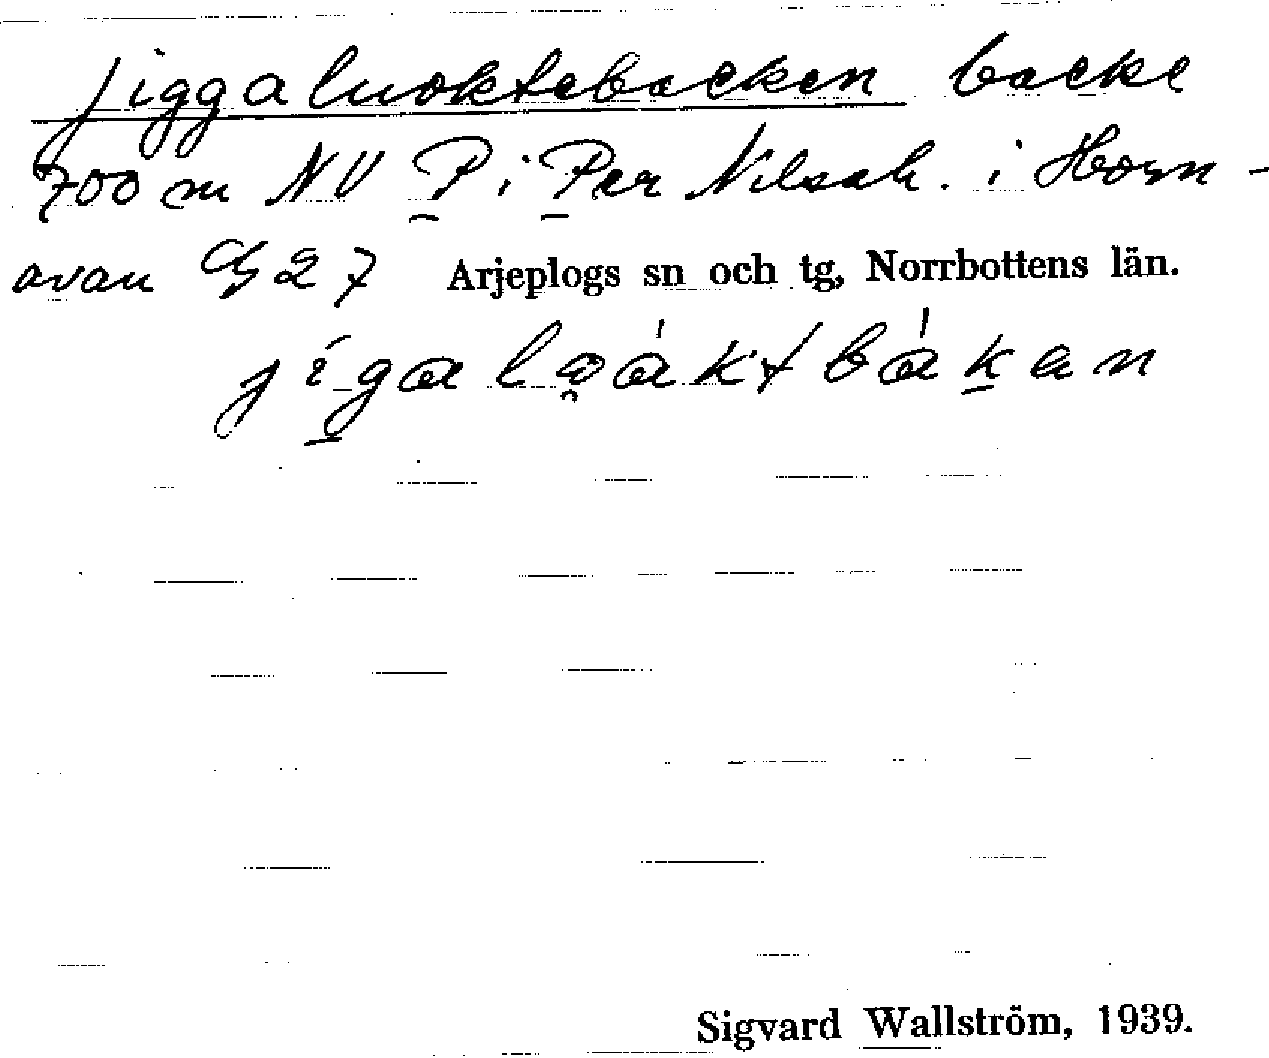 Jiggaluoktebacken backe
700 m NV P i Per Nilsah. i Horn-
avan G 27 Arjeplogs sn och tg, Norrbottens län.
jígaloáktbákan
Sigvard Wallström, 1939.